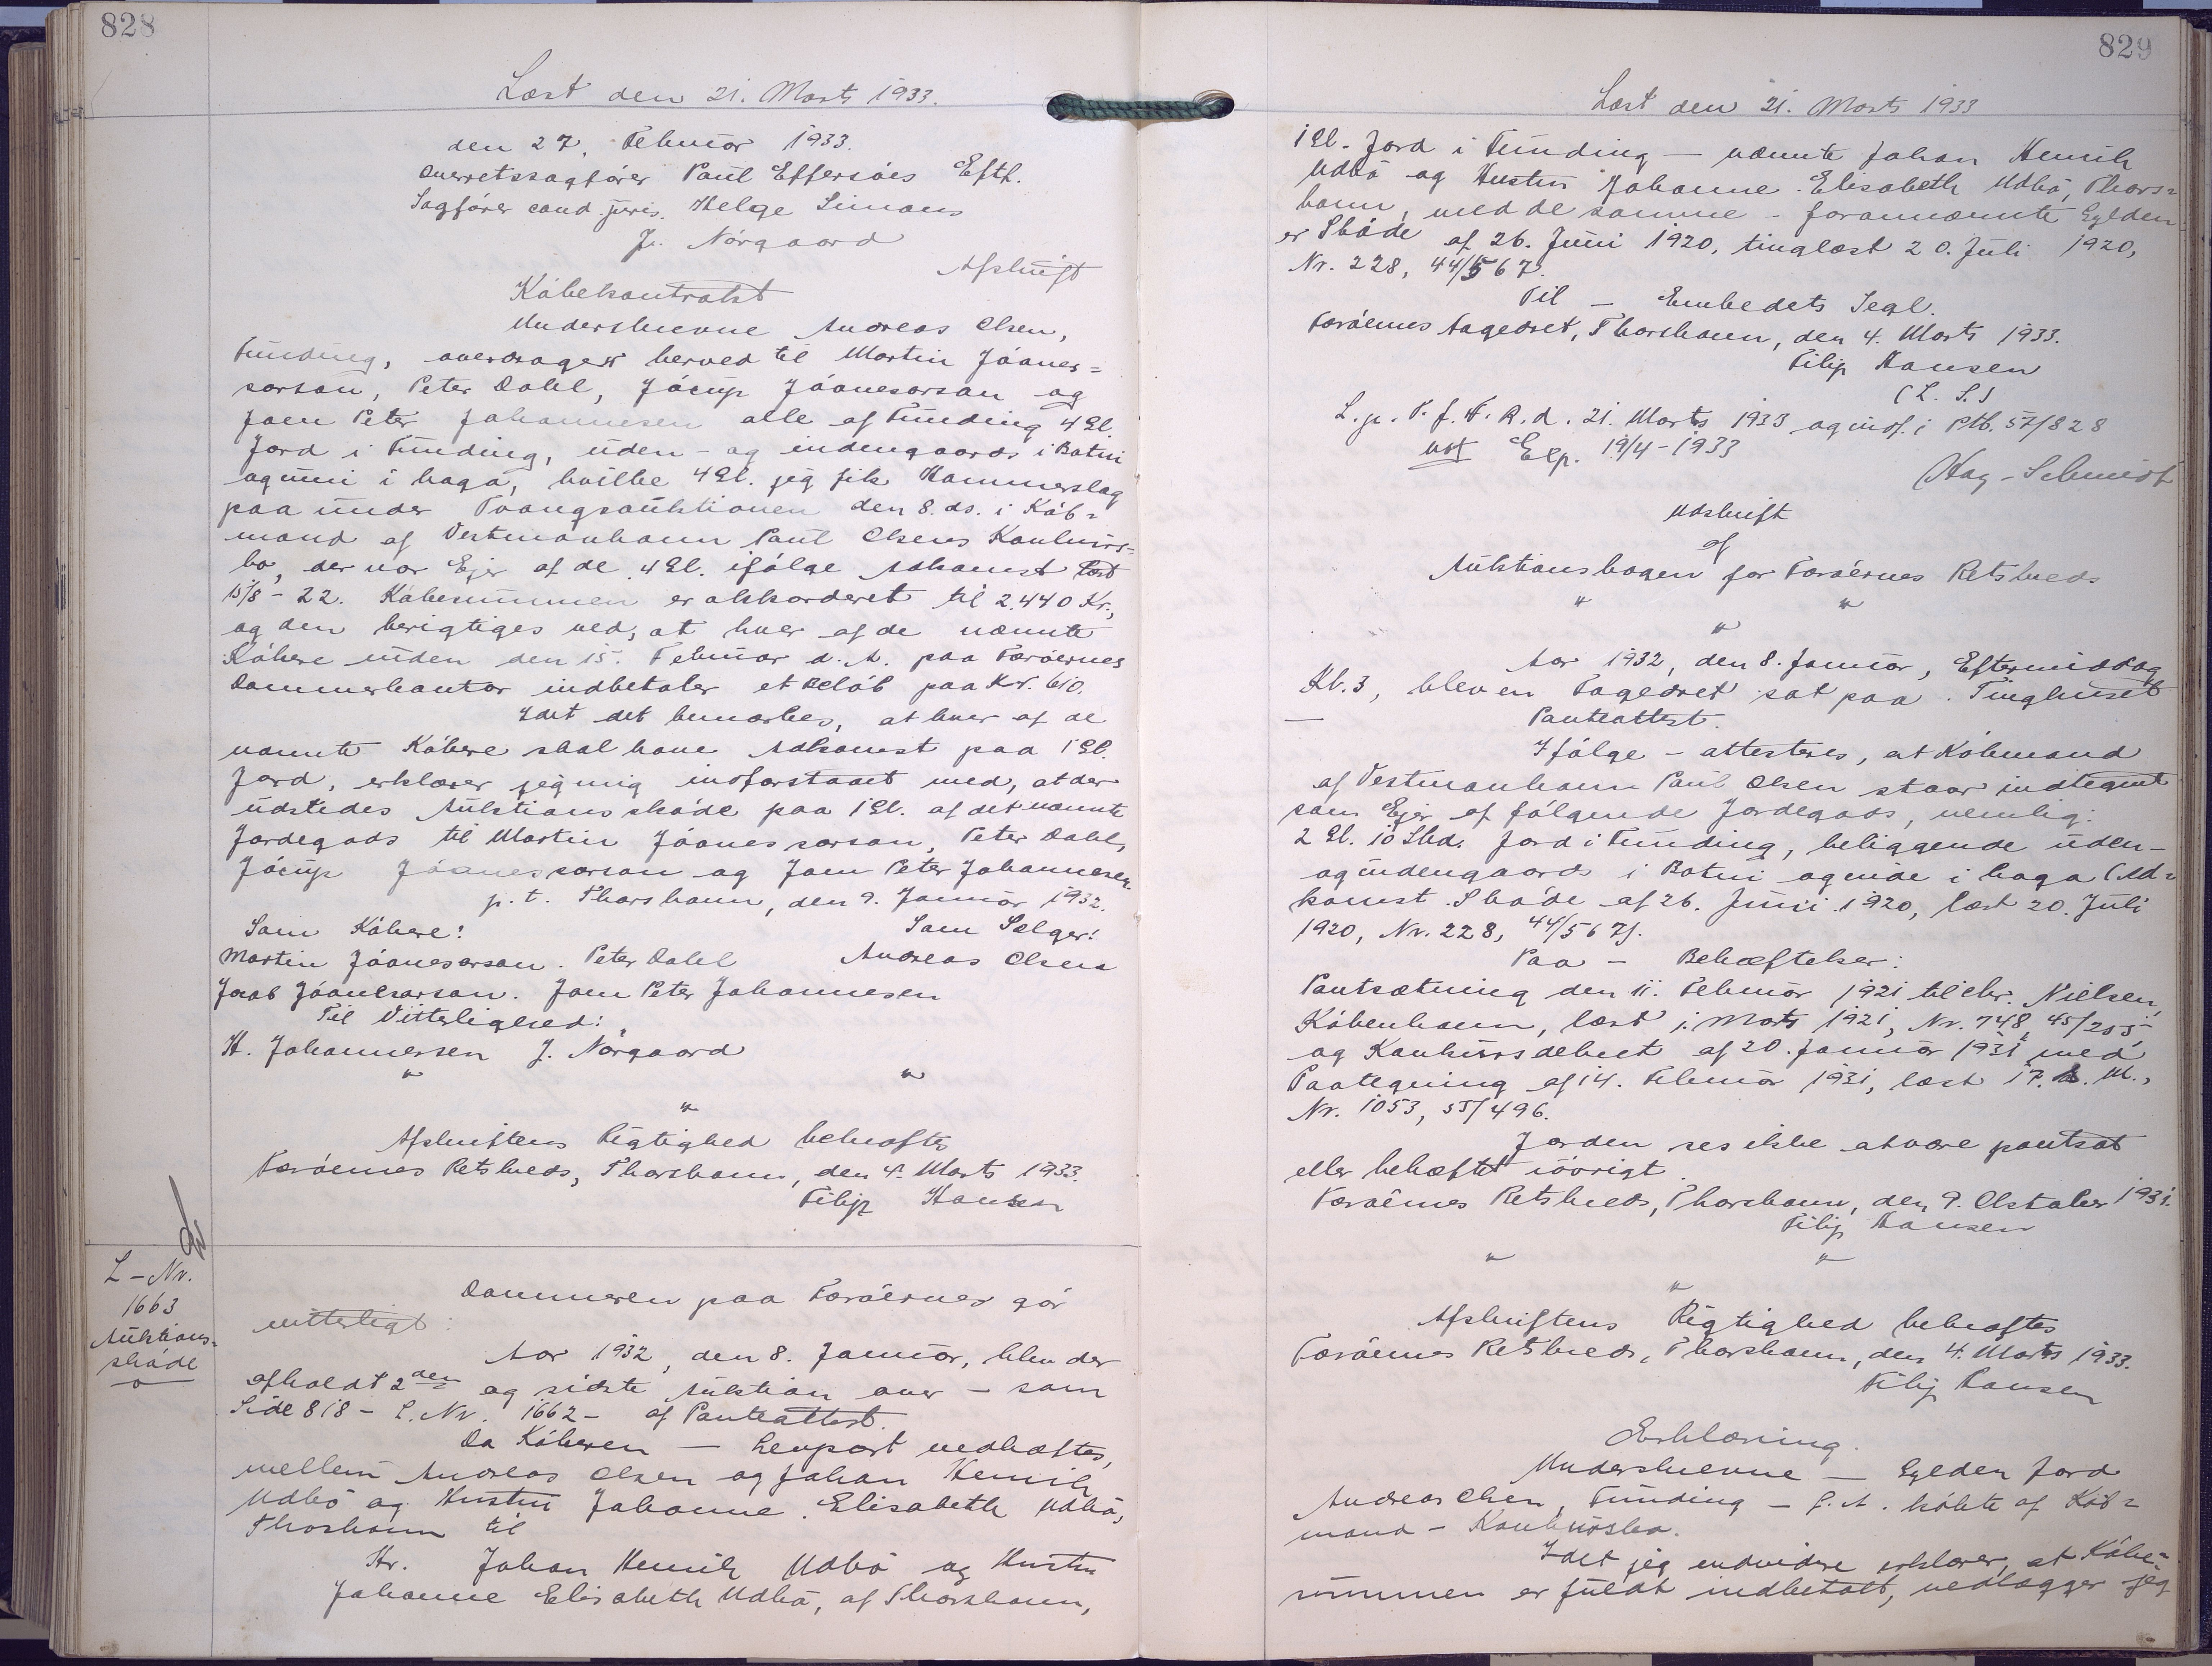 828
Læst den 21. Marts 1933.
den 27. Februar 1933.
Overretssagfører Paul Effersøes Eftf.
Sagfører cand. juris. Helge Simons
J. Nørgaard
Afskrift
Købekontrakt
Underskrevne Andreas Olsen,
Funding, overdrager herved til Martin Jóanes=
sarson, Peter Dahl, Jácup Jóanesarson og
Joen Peter Johannesen alle af Funding 4 Gl.
Jord i Funding, uden- og indengaards i Botni
og uni i haga, hvilke 4 Gl. jeg fik Hammerslag
paa under Tvangsauktionen den 8. ds. i Køb=
mand af Vestmanhavn Paul Olsens Konkurs=
bo, der var Ejer af de 4 Gl. ifølge Adkomst læst
15/8-22. Købesummen er akkorderet til 2.440 Kr.,
og den berigtiges ved, at hver af de nævnte
Købere inden den 15. Februar d. A. paa Færøernes
Dommerkontor indbetaler et Beløb paa Kr. 610.
Idet det bemærkes, at hver af de
nævnte Købere skal have Adkomst paa 1 Gl.
Jord, erklærer jeg mig indforstaaet med, at der
udstedes Auktionsskøde paa 1 Gl. af det nævnte
Jordegods til Martin Jóanessarson, Peter Dahl,
Jácup Jóanessarson og Joen Peter Johannesen.
p. t. Thorshavn, den 9. Januar 1932.
Som Købere: Som Sælger:
Martin Jóanesarson. Peter Dahl Andreas Olsen
Jacob Jóanesarson. Joen Peter Johannesen
Til Vitterlighed:
H. Johannessen J. Nørgaard
" "
"
Afskriftens Rigtighed bekræftes
Færøernes Retskreds, Thorshavn, den 4. Marts 1933.
Filip Hansen
L-Nr.
1663
Auktions=
skøde
Dommeren paa Færøerne gør
vitterligt:
Aar 1932, den 8. Januar, blev der
afholdt 2den og sidste Auktion over - som
Side 818 - L. Nr. 1662 - af Panteattest.
Da Køberen - Genpart vedhæftes,
mellem Andreas Olsen og Johan Henrik
Udbø og Hustru Johanne Elisabeth Udbø,
Thorshavn til
Hr. Johan Henrik Udbø og Hustru
Johanne Elisabeth Udbø, af Thorshavn,
829
Læst den 21. Marts 1933
1 Gl. Jord i Funding - nævnte Johan Henrik
Udbø og Hustru Johanne Elisabeth Udbø, Thors=
havn, med de samme - forannævnte Gylden
er Skøde af 26. Juni 1920, tinglæst 20. Juli 1920,
Nr. 228, 44/567.
Til - Embedets Segl.
Færøernes Fogedret, Thorshavn, den 4. Marts 1933.
Filip Hansen
(L. S.)
L. p. T. f. F. R. d. 21. Marts 1933 og indf. i Ptb. 57/828
Exp. 19/4-1933
Hag-Schmidt
Udskrift
af
Auktionsbogen for Færøernes Retskreds
" "
"
Aar 1932, den 8. Januar, Eftermiddag
Kl. 3, blev en Fogedret sat paa Tinghuset
Panteattest.
Ifølge - attesteres, at Købmand
af Vestmanhavn Paul Olsen staar indtegnet
som Ejer af følgende Jordegods, nemlig:
2 Gl. 10 Skd. Jord i Funding, beliggende uden-
og indengaards i Botni og inde i haga (Ad=
komst Skøde af 26. Juni 1920, læst 20. Juli
1920, Nr. 228, 44/567).
Paa - Behæftelser:
Pantsætning den 11. Februar 1921 til Chr. Nielsen,
København, læst 1. Marts 1921, Nr. 748, 45/205
og Konkursdekret af 20. Januar 1931 med
Paategning af 14. Februar 1931, læst 17. s. M.,
Nr. 1053, 55/496.
Jorden ses ikke at være pantsat
eller behæftet iøvrigt.
Færøernes Retskreds, Thorshavn, den 9. Oktober 1931.
Filip Hansen
" "
"
Afskriftens Rigtighed bekræftes
Færøernes Retskreds, Thorshavn, den 4. Marts 1933.
Filip Hansen
Erklæring.
Underskrevne - Gylden Jord
Andreas Olsen, Funding - f. A. købte af Køb=
mand - Konkursbo.
Idet jeg endvidere erklærer, at Købe=
summen er fuldt indbetalt, vedlægger jeg